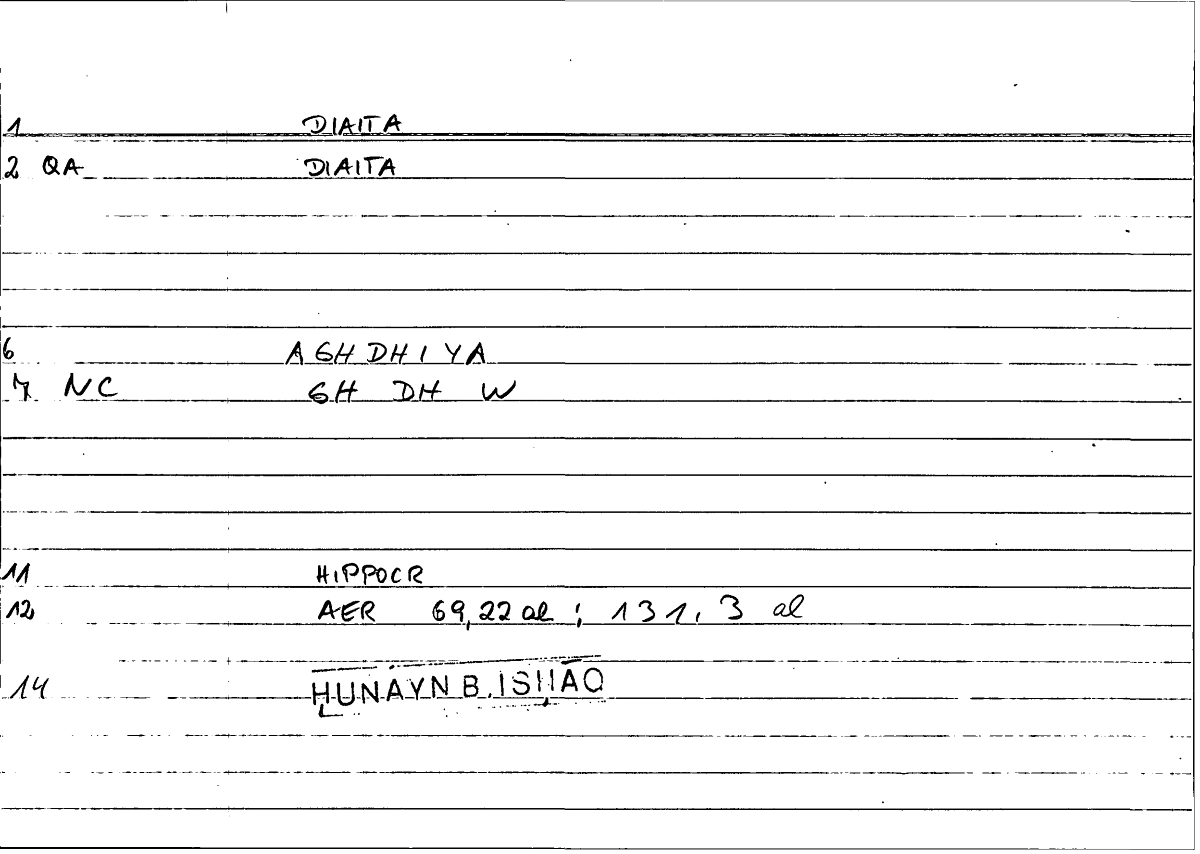 1 DIAITA
2 QA DIAITA
6 AGHDHIYA
7 NC GH DH W
11 HIPPOCR
12 AER 69,22 al ; 131, 3 al
14 ḤUNAYN B. ISḤĀQ